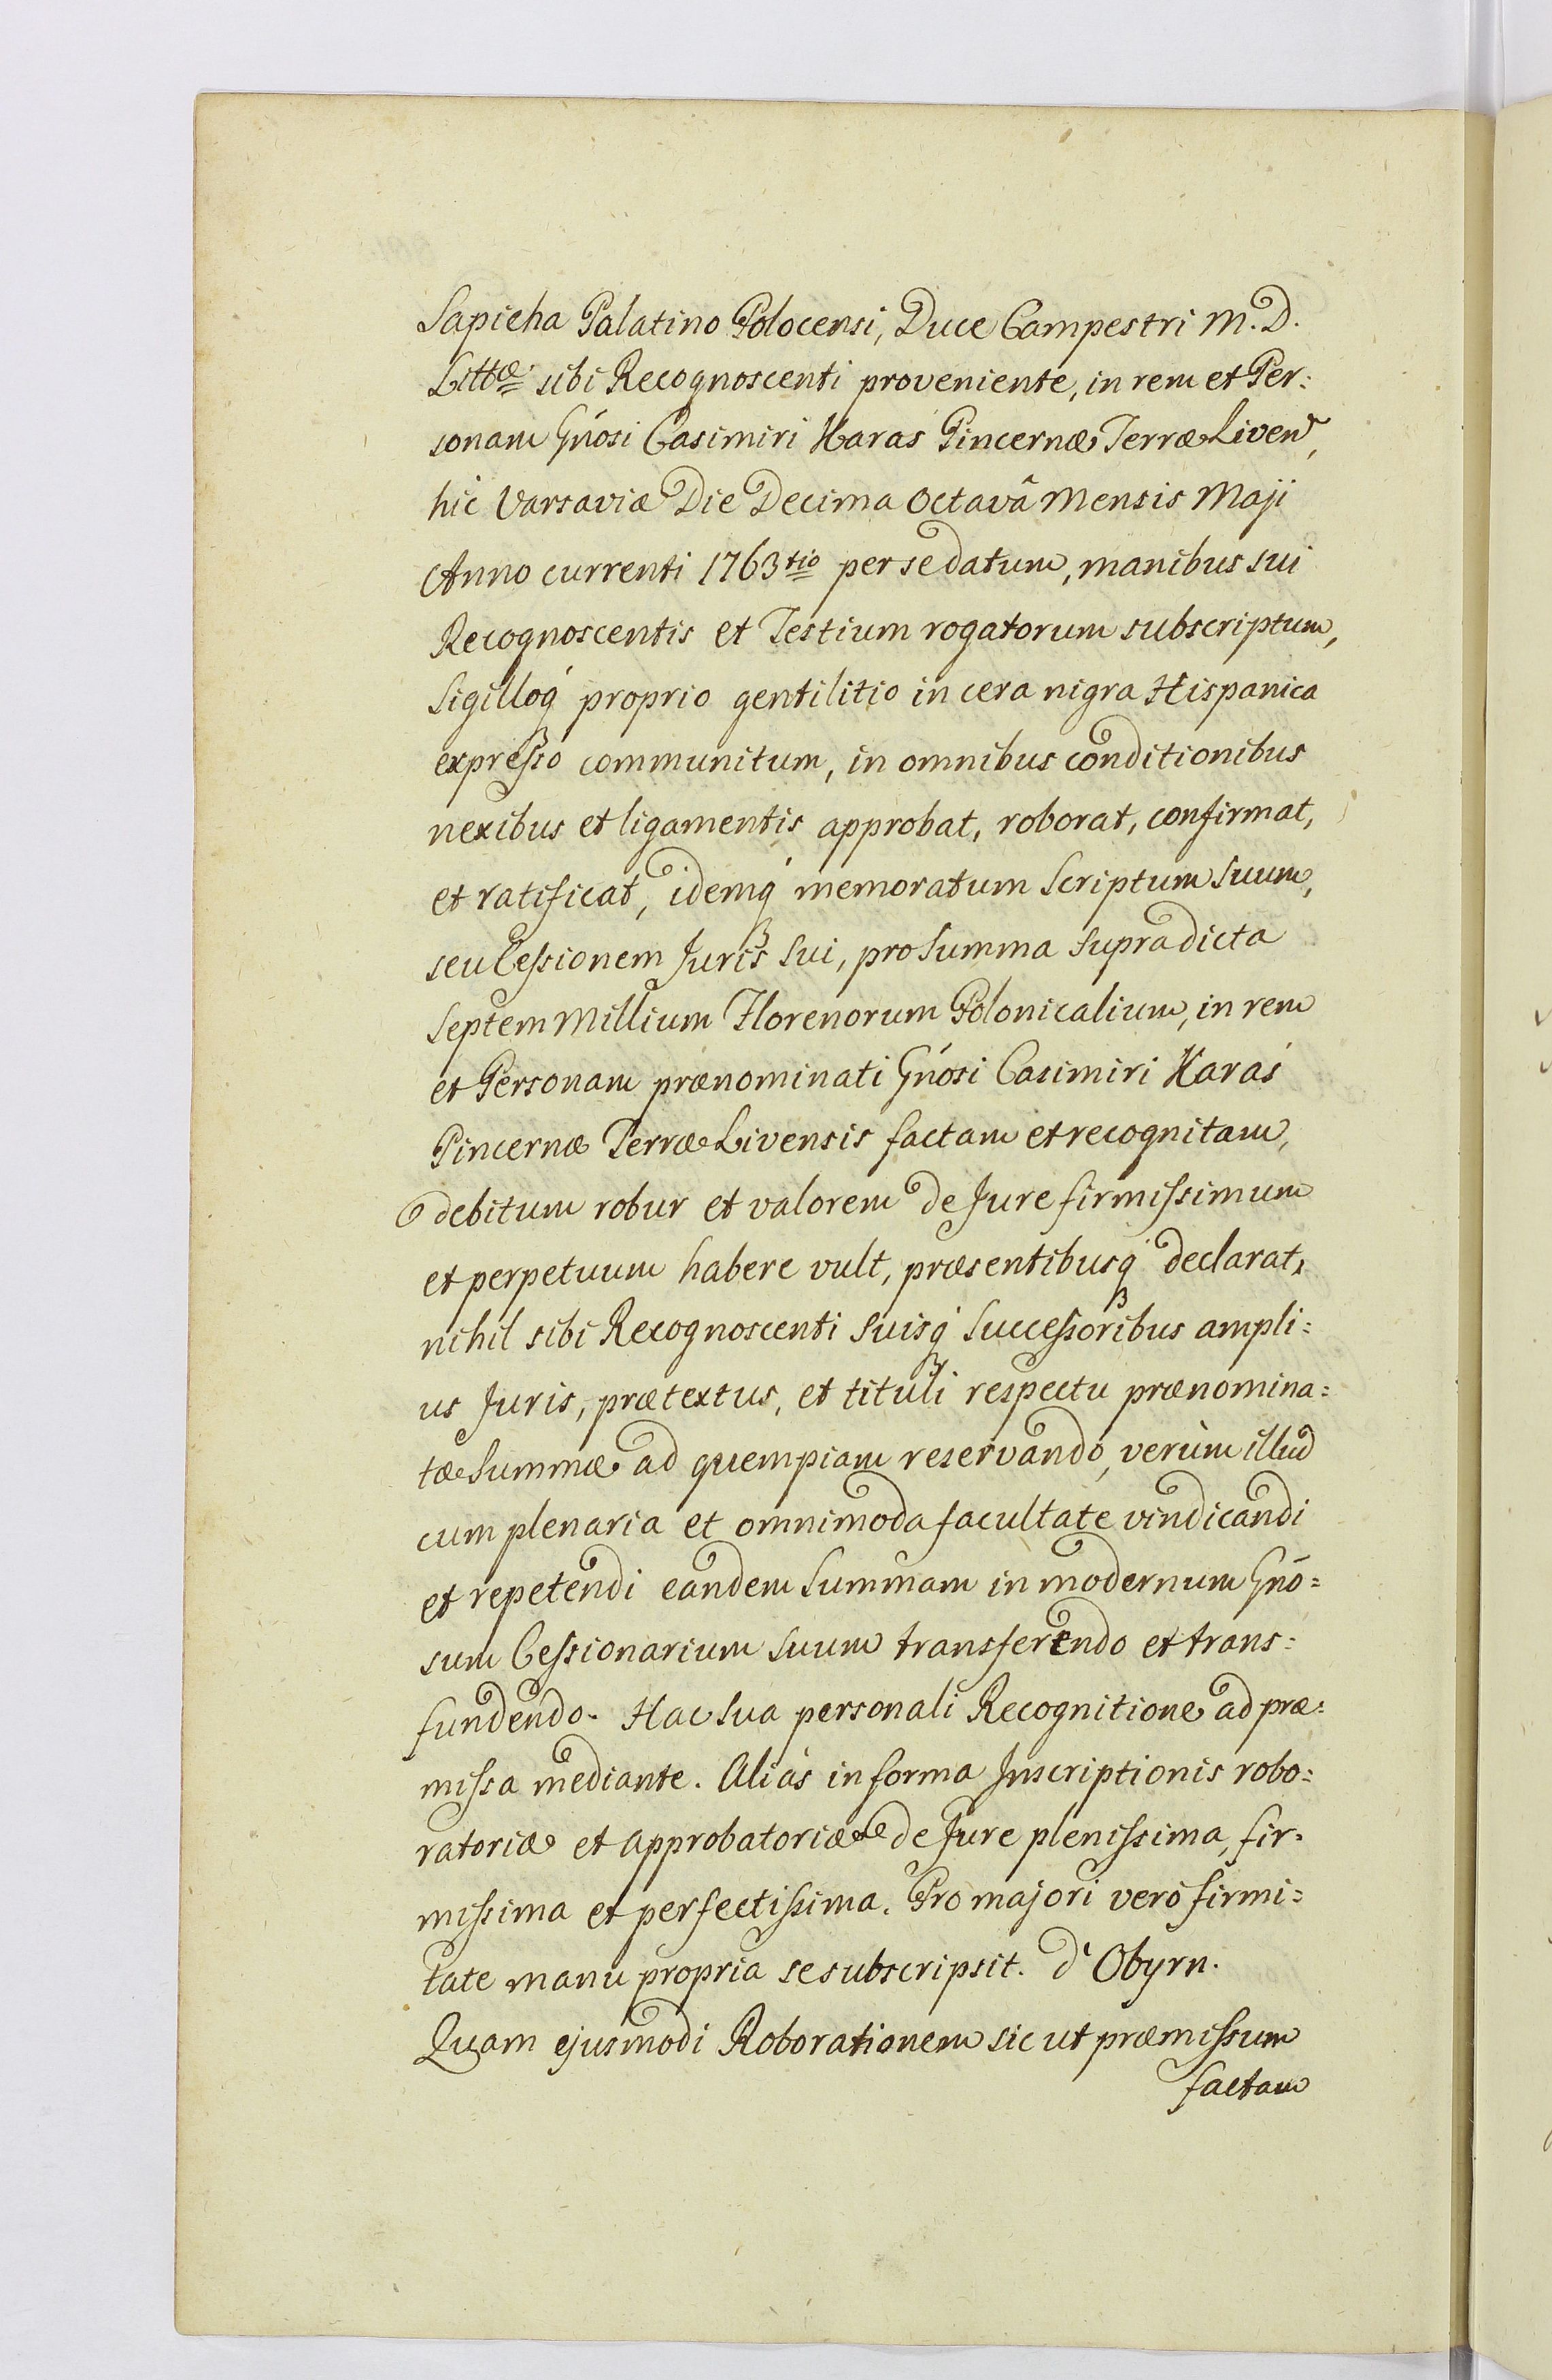 Sapieha Palatino Polocensi, Duce Campestri M. D.
Littæ sibi Recognoscenti proveniente, in rem et Per:
sonam Gnósi Casimiri Karaś Pincernæ Terræ Liven,
hic Varsaviæ Die Decima Octavâ Mensis Maji
Anno currenti 1763tio per se datum, manibus sui
Recognoscentis et Testium rogatorum subscriptum,
Sigilloq́ proprio gentilitio in cera nigra Hispanica
expresso communitum, in omnibus conditionibus
nexibus et ligamentis approbat, roborat, confirmat,
et ratificat, idemq́ memoratum Scriptum suum,
seu Cessionem Juris Sui, pro Summa Supradicta
Septem Millium Florenorum Polonicalium, in rem
et Personam prænominati Gnósi Casimiri Karaś
Pincernæ Terræ Livensis factam et recognitam,
debitum robur et valorem de Jure firmissimum
et perpetuum habere vult, præsentibusq́ declarat,
nihil sibi Recognoscenti Suisq́ Successoribus ampli:
us Juris, prætextus, et tituli respectu prænomina:
tæ Summæ ad quempiam reservando, verùm illud
cum plenaria et omnimoda facultate vindicandi
et repetendi eandem Summam in modernum Gnó:
sum Cessionarium Suum transferendo et trans:
fundendo. Hac Sua personali Recognitione ad præ:
missa mediante. Aliàs in forma Inscriptionis robo:
ratoriæ et approbatoriæ de Jure plenissima, fir:
missima et perfectissima. Pro majori verò firmi:
tate manu propria se subscripsit. d'Obyrn.
Quam ejusmodi Roborationem sic ut præmissum
factam